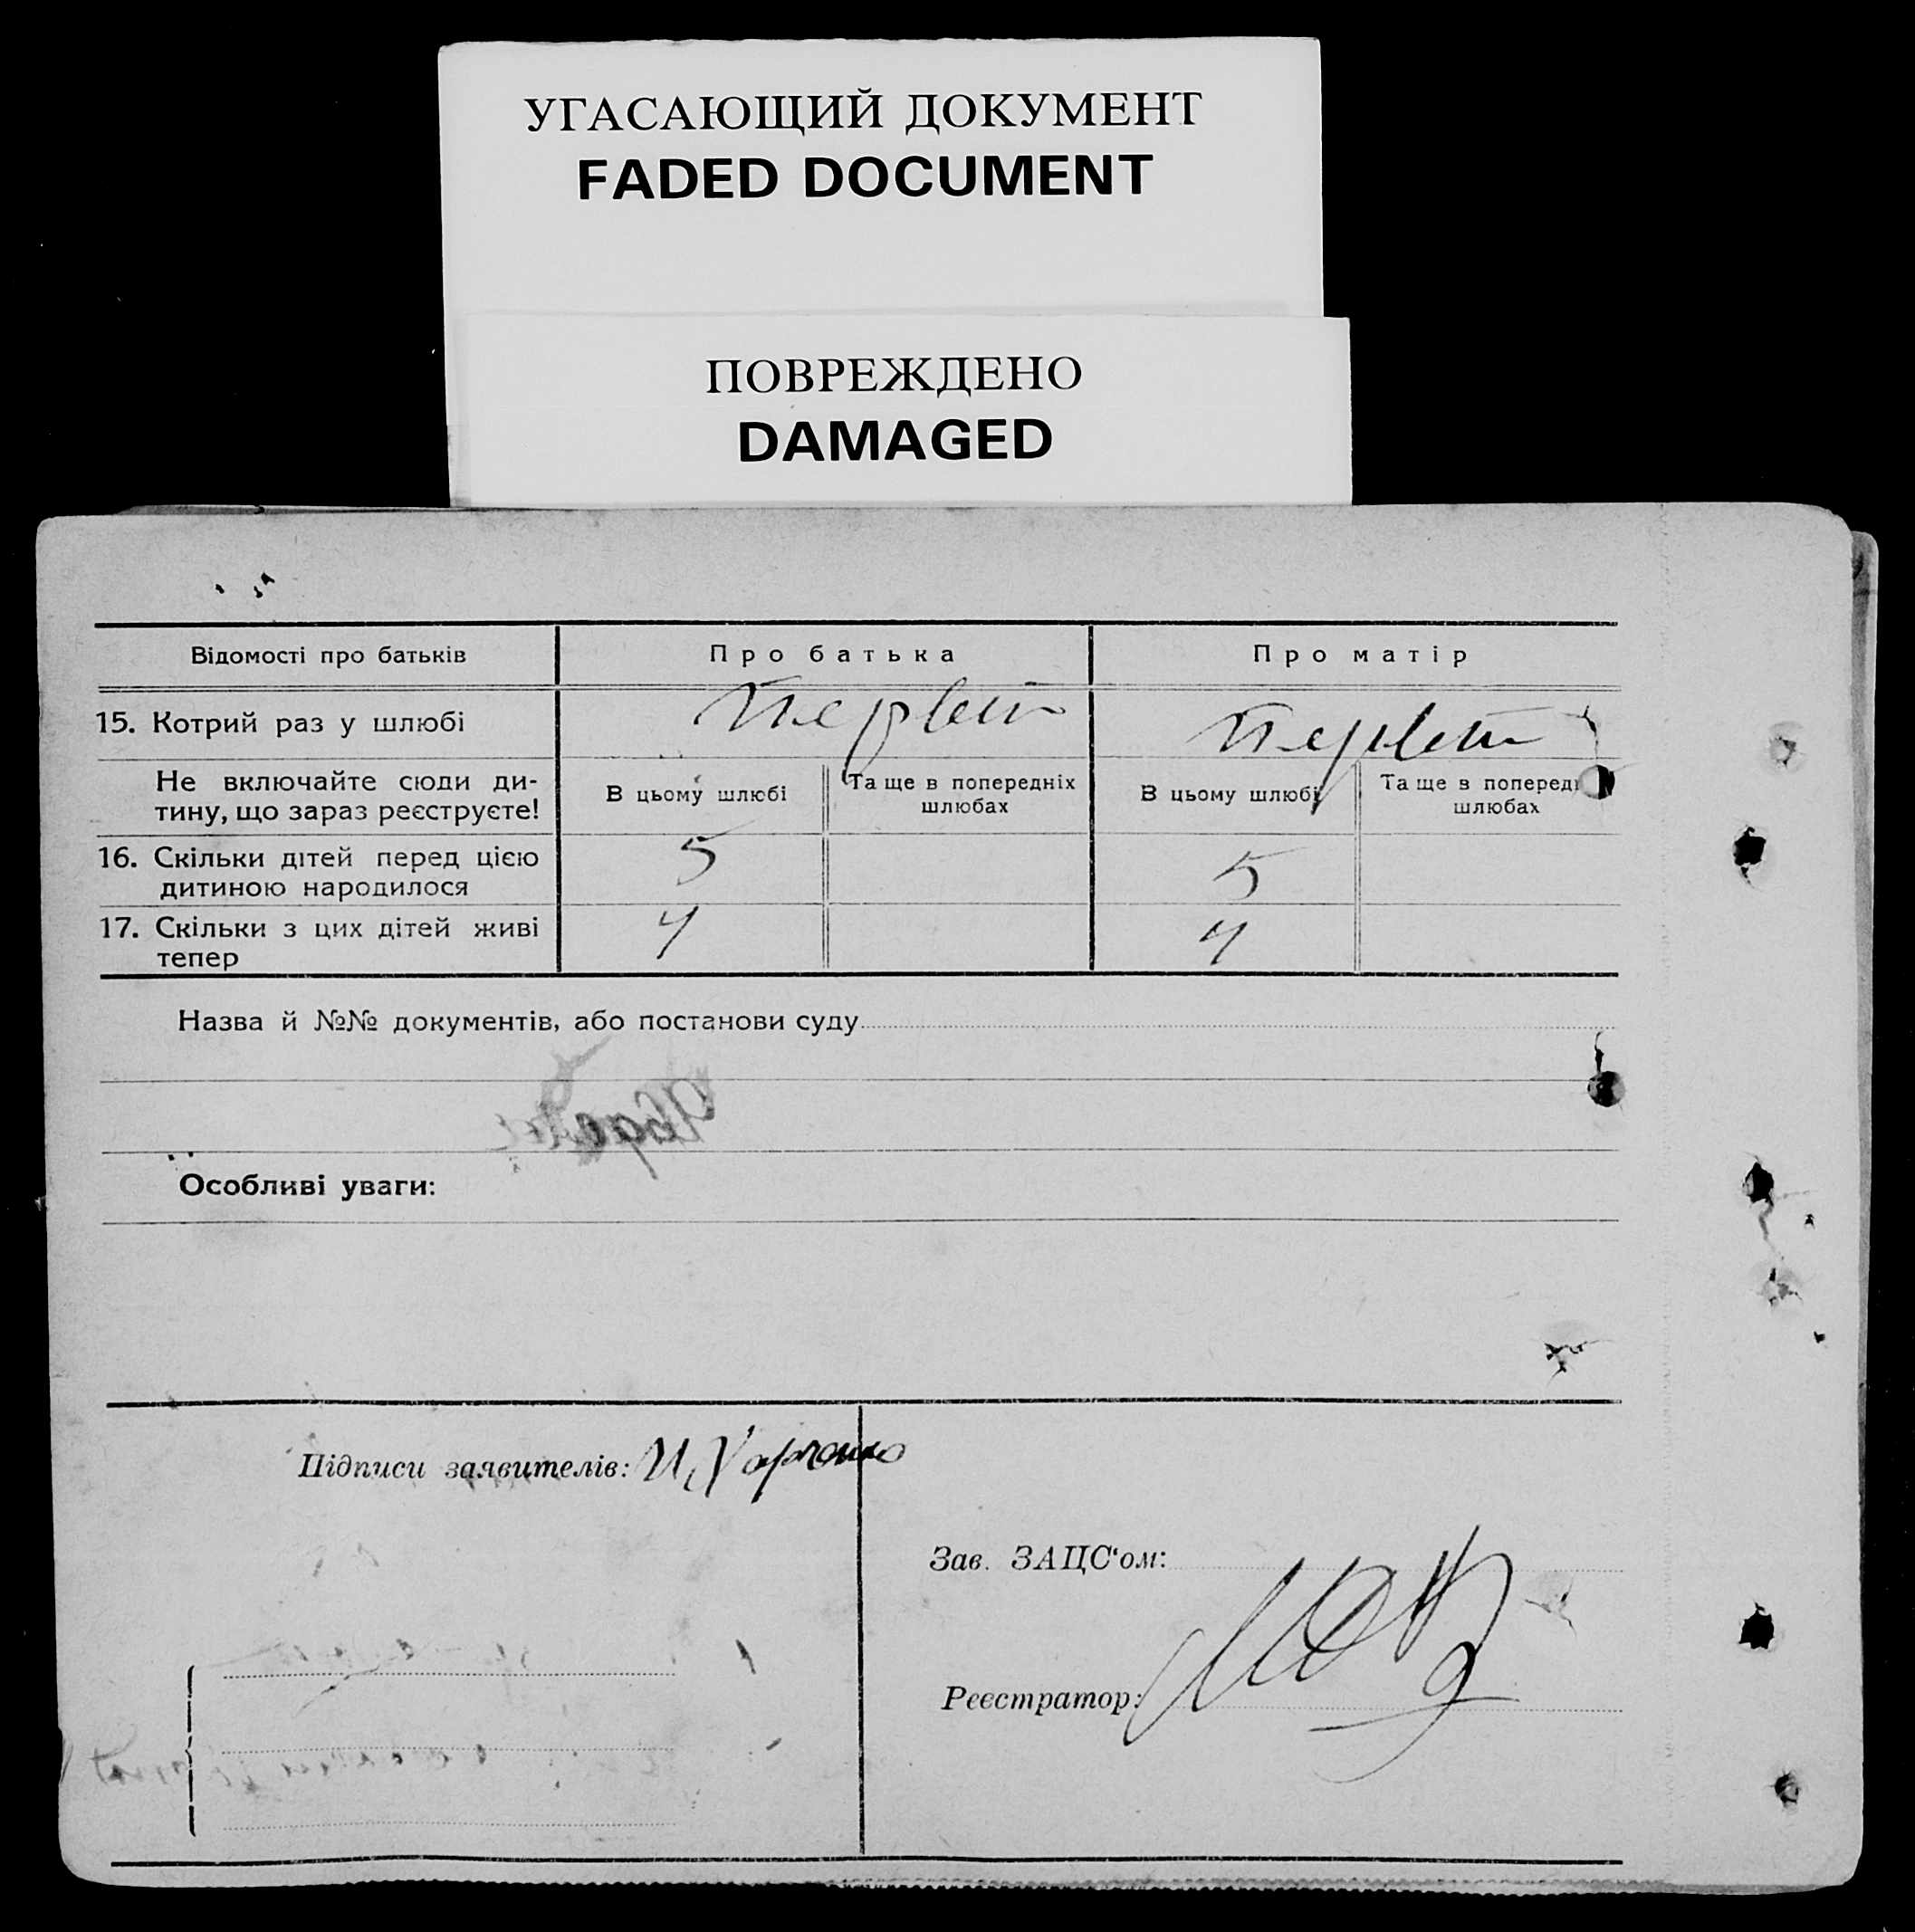 УГАСАЮЩИЙ ДОКУМЕНТ
FADED DOCUMENT
ПОВРЕЖДЕНО
DAMAGED
Відомості про батьків
Про батька
Про матір
15. Котрий раз у шлюбі
Не включайте сюди ди-
тину, що зараз реєструєте!
В цьому шлюбі
Та ще в попередніх
шлюбах
В цьому шлюбі
Та ще в поперед
шлюбах
16. Скільки дітей перед цією
дитиною народилося
5
5
17. Скільки з цих дітей живі
тепер
4
4
Назва й №№ документів, або постанови суду
Особливі уваги:
Підписи заявителів: И. Харченко
Зав. ЗАЦС‘ом:
Реєстратор: